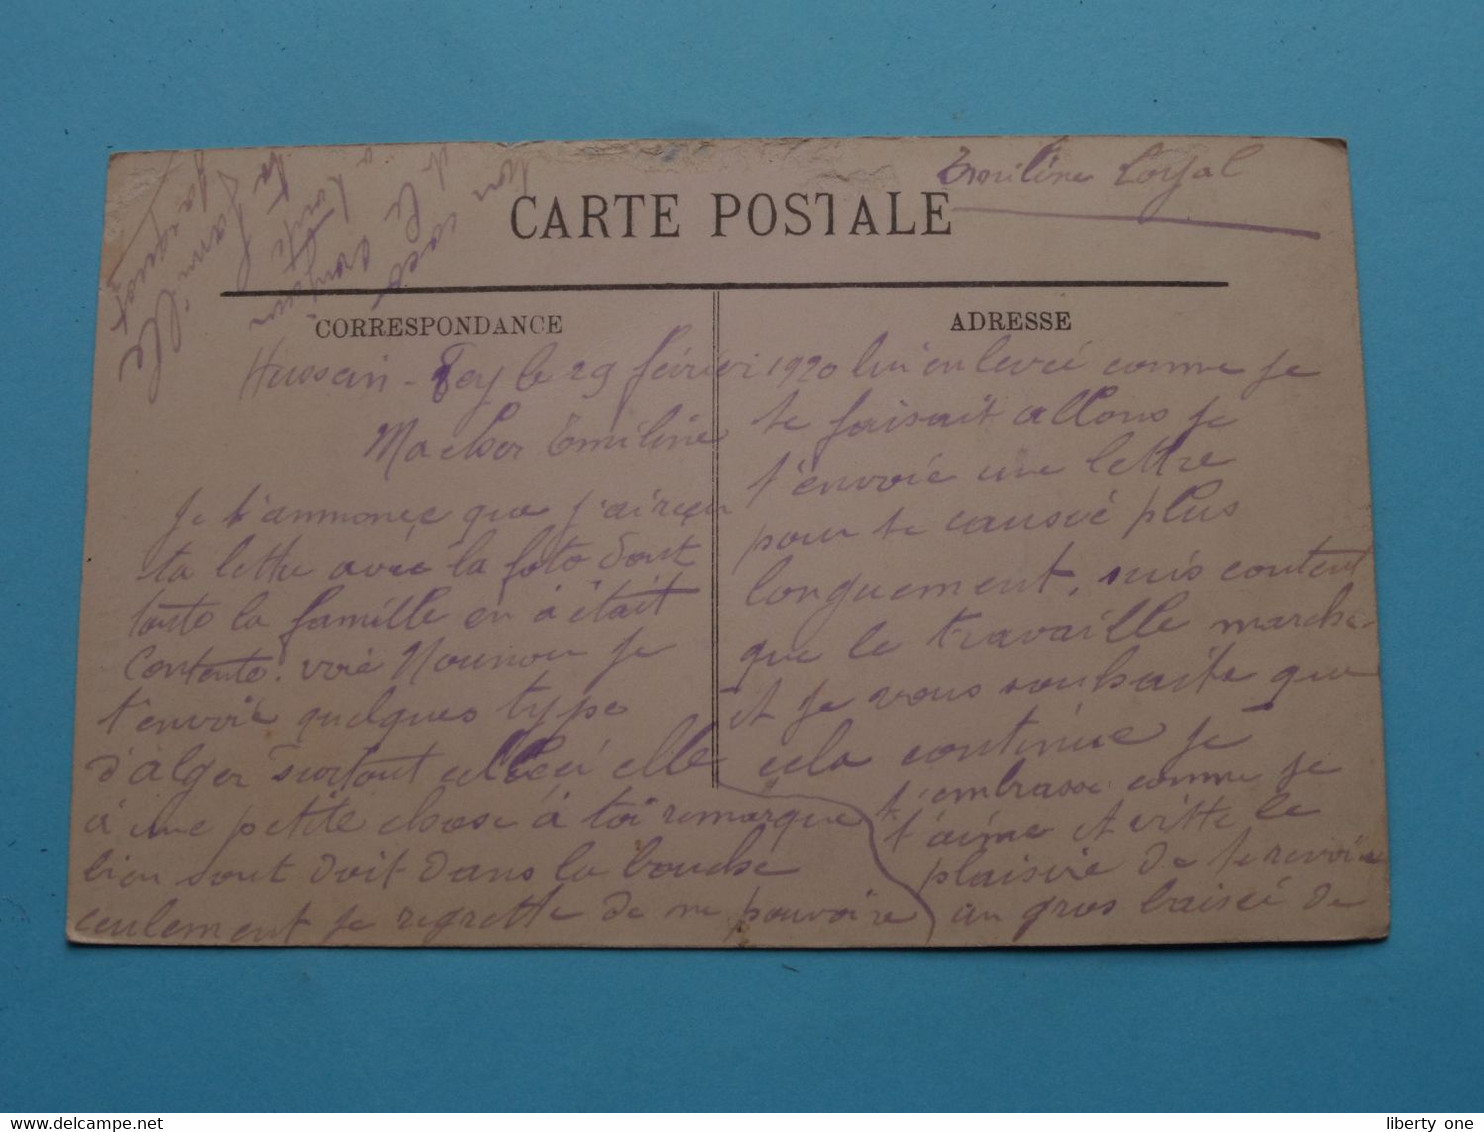 Emiline Loyal
CARTE POSTALE
CORRESPONDANCE
ADRESSE
Hussein-Dey le 29 févrivi 1920
Ma cher Emiline
Je t'annonce que j'ai reçu
ta lettre avec la foto dont
toute la famille en à était
contente. voié Nounou je
t'envoié quelques type
d'alger surtout celle elle
à une petite chose à toi remarque
bien sout doit dans la bouche
seulement je regrette de ne pouvoire
lui enlevée comme je
te faisait allons je
t'envoié une lettre
pour te causée plus
longuement, suis content
que le travaille marche
et je vous souhaite que
cela continue je
t'embrasse comme je
t'aime et vitte le
plaisire de te revoire
un gros baisée de
ton
à toute
ta famille
liberty one